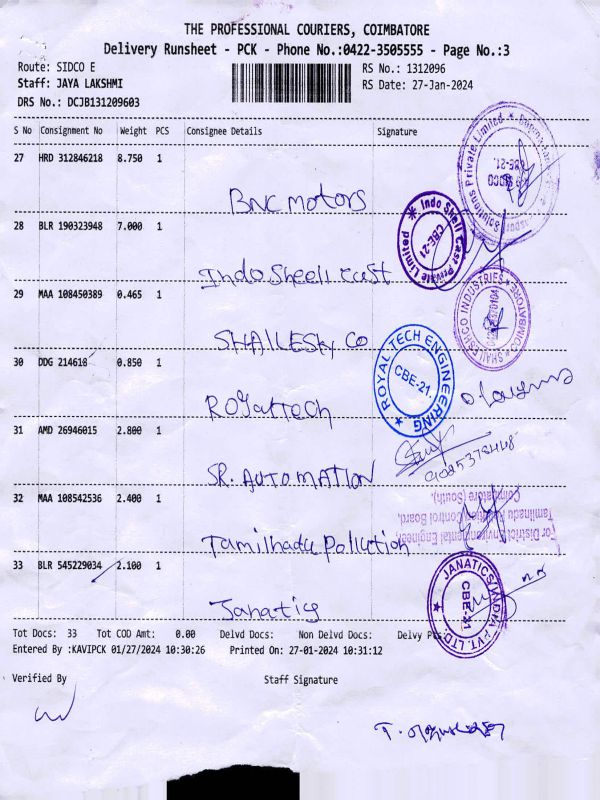 THE PROFESSIONAL COURIERS, COIMBATORE
Delivery Runsheet - PCK - Phone No.:0422-3505555 - Page No.:3
Route: SIDCO E
RS No.: 1312096
Staff: JAYA LAKSHMI
RS Date: 27-Jan-2024
DRS No.: DCJB131209603
S No Consignment No Weight PCS Consignee Details Signature
27 HRD 312846218 8.750 1
BNC MOTORS
Solutions Private Limited
CBE-21
28 BLR 190323948 7.000 1
Indo Sheell Cast
Indo Shell Cast Private Limited
CBE-21
29 MAA 108450389 0.465 1
SHAILESHCO
SHAILESHCO INDUSTRIES COIMBATORE
30 DDG 214618 0.850 1
Royal Tech
ROYAL TECH ENGINEERING
CBE-21.
31 AMD 26946015 2.800 1
SR. AUTOMATION
32 MAA 108542536 2.400 1
Tamilnadu Pollution
For District Environmental Engineer,
Tamilnadu Pollution Control Board,
Coimbatore (South).
33 BLR 545229034 2.100 1
Janatics
JANATICS INDIA PVT. LTD.
CBE-21
Tot Docs: 33 Tot COD Amt: 0.00 Delvd Docs: Non Delvd Docs: Delvy
Entered By :KAVIPCK 01/27/2024 10:30:26 Printed On: 27-01-2024 10:31:12
Verified By Staff Signature